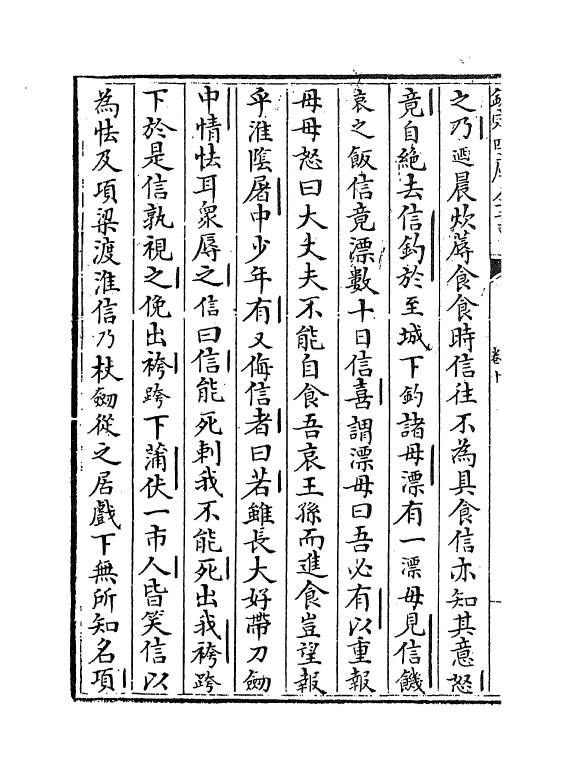 卷十
之乃遞晨炊蓐食食時信往不為具食信亦知其意怒
竟自絶去信釣於至城下釣諸母漂有一漂母見信饑
哀之飯信竟漂數十日信喜謂漂母曰吾必有以重報
母母怒曰大丈夫不能自食吾哀王孫而進食豈望報
乎淮陰屠中少年有又侮信者曰若雖長大好帶刀劒
中情怯耳衆辱之信曰信能死刺我不能死出我袴跨
下於是信孰視之俛出袴跨下蒲伏一市人皆笑信以
為怯及項梁渡淮信乃杖劒從之居戲下無所知名項